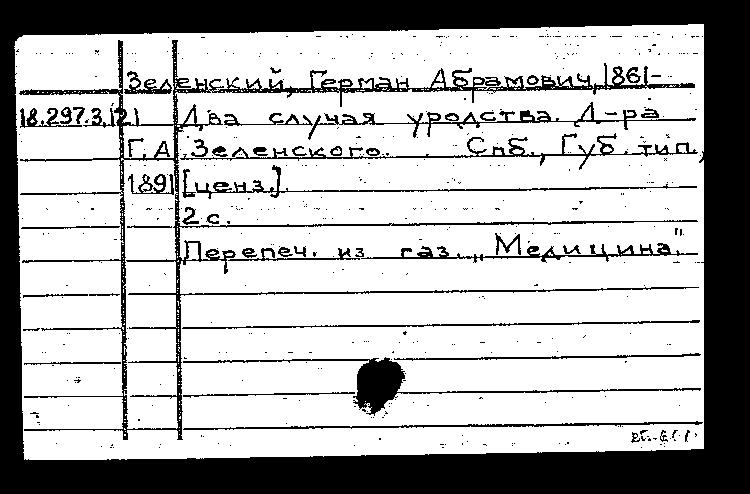 Зеленский, Герман Абрамович, 1861-
18.297.3.121 Два случая уродства. Д-ра
Г.А. Зеленского. Спб., Губ. тип.,
1891 [ценз.].
2 с.
Перепеч. из газ. „Медицина".